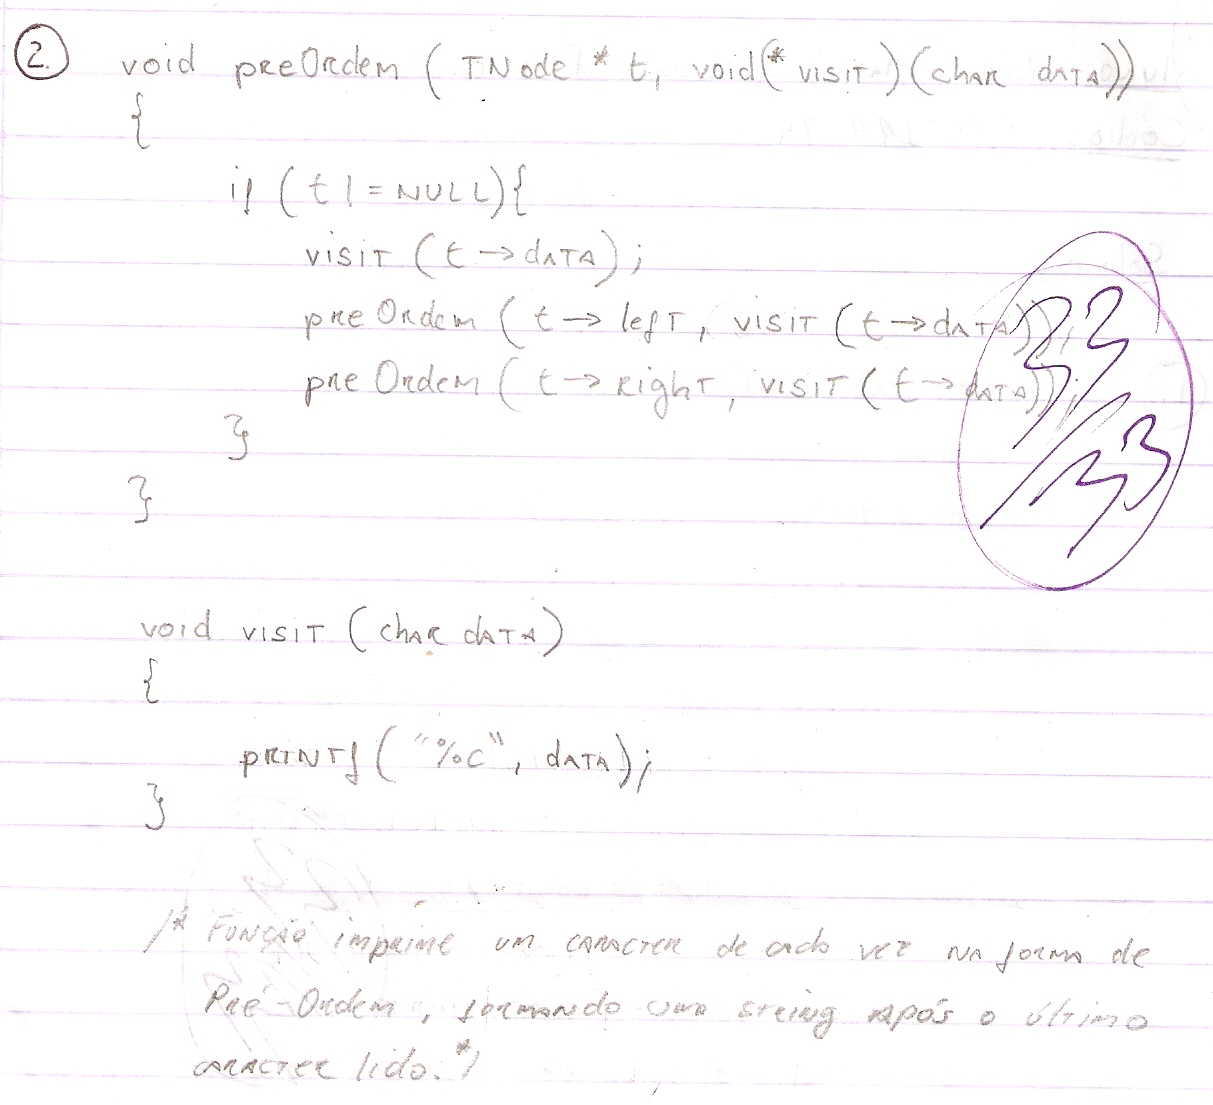 2. void preOrdem ( TNode * t, void(* visit)(char data))
{
if ( t != NULL){
visit ( t -> data);
preOrdem ( t -> left, visit ( t -> data));
preOrdem ( t -> right, visit ( t -> data));
}
}
void visit ( char data)
{
printf ( "%c", data);
}
/* Função imprime um caracter de cada vez na forma de
Pré-Ordem, formando uma string após o último
caracter lido. */